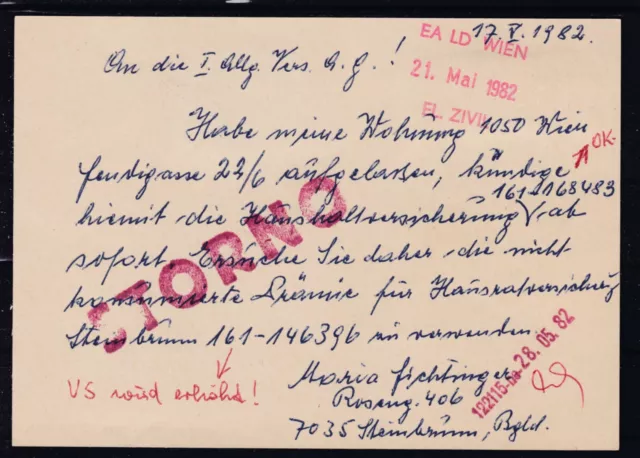 17. V. 1982.
EA LD WIEN
21. Mai 1982
EL. ZIVIL
An die I. Allg. Vers. A. G.!
Habe meine Wohnung 1050 Wien
OK-
Fendigasse 22/6 aufgelassen, kündige
161-168483
hiemit die Haushaltversicherung ab
sofort. Ersuche Sie daher die nicht
konsumierte Prämie für Hausratversicherg
Steinbrunn 161-146396 zu verwenden.
STORNO
VS wird erhöht!
Maria Fichtinger
Roseng. 406
7035 Steinbrunn, Bgld.
28. 05. 82